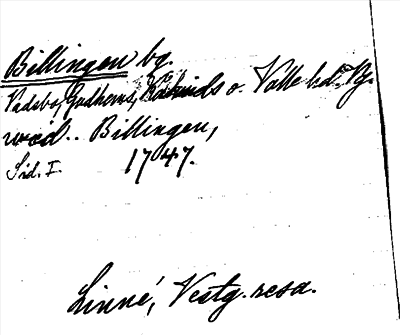 Billingen bg.
Vadsbo, Gudhems, Kåkinds o. Valle hd. Vg.
wid.. Billingen,
Sid. I. 1747.
Linné, Vestg. resa.